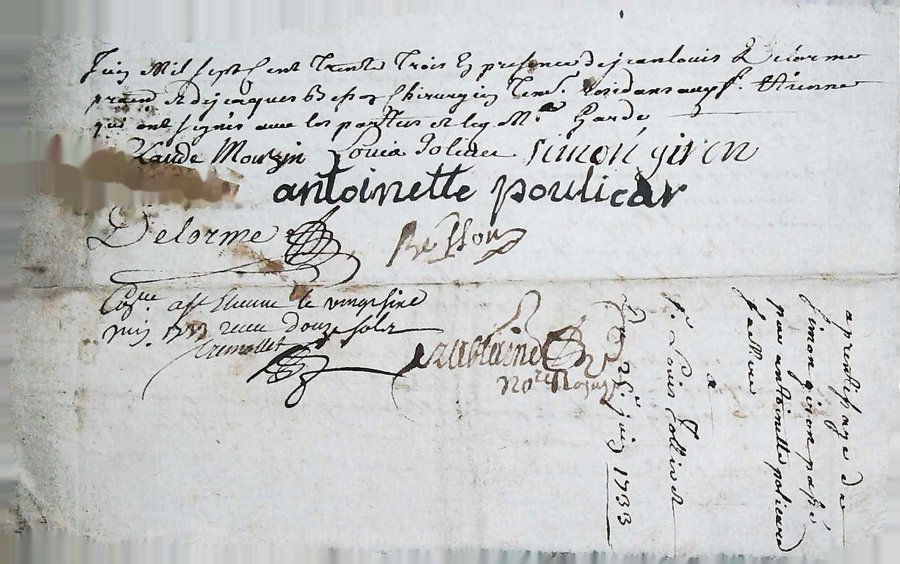 Juin Mil sept Cent Trente Trois En presence de jean louis Delorme
praen et de jacques Besson Chirurgien temt. residans aud st. Etienne
qui ont signés avec les parties et leg Mtre Garde
Claude Mourgin Louis Jolivet simon giron
antoinette poulicar
Delorme
Besson
Con.lle a st Etienne le vingt sixe
juin 1733 receu douze sols
tremollet
No.re Royal
aprentissage de
simon giron passé
par antoinette policard
sa mere
a
Sr Louis Jollivet
Du 25e juin 1733